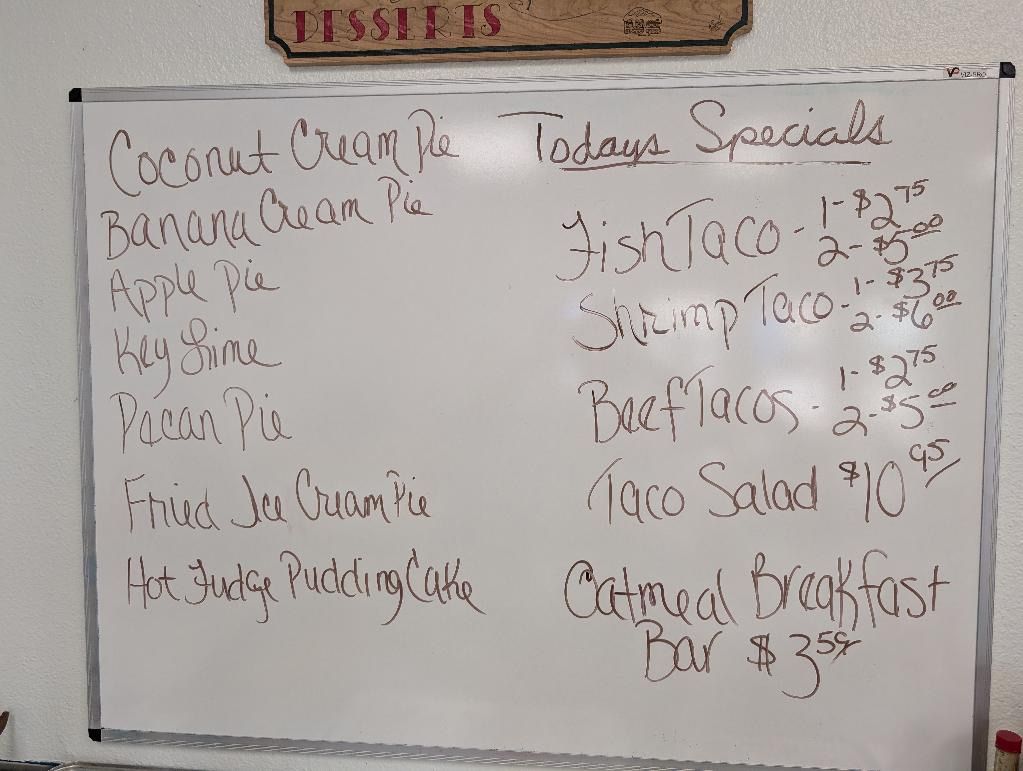 DESSERTS
Coconut Cream Pie
Banana Cream Pie
Apple Pie
Key Lime
Pecan Pie
Fried Ice Cream Pie
Hot Fudge Pudding Cake
Todays Specials
Fish Taco - 1- $2.75
2- $5.00
Shrimp Taco - 1- $3.75
2- $6.00
Beef Tacos - 1- $2.75
2- $5.00
Taco Salad $10.95
Oatmeal Breakfast
Bar $3.59